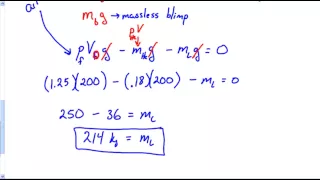 m_b g → massless blimp
ρV
ρ_f V_B g - m_He g - m_L g = 0
(1.25)(200) - (.18)(200) - m_L = 0
250 - 36 = m_L
214 kg = m_L